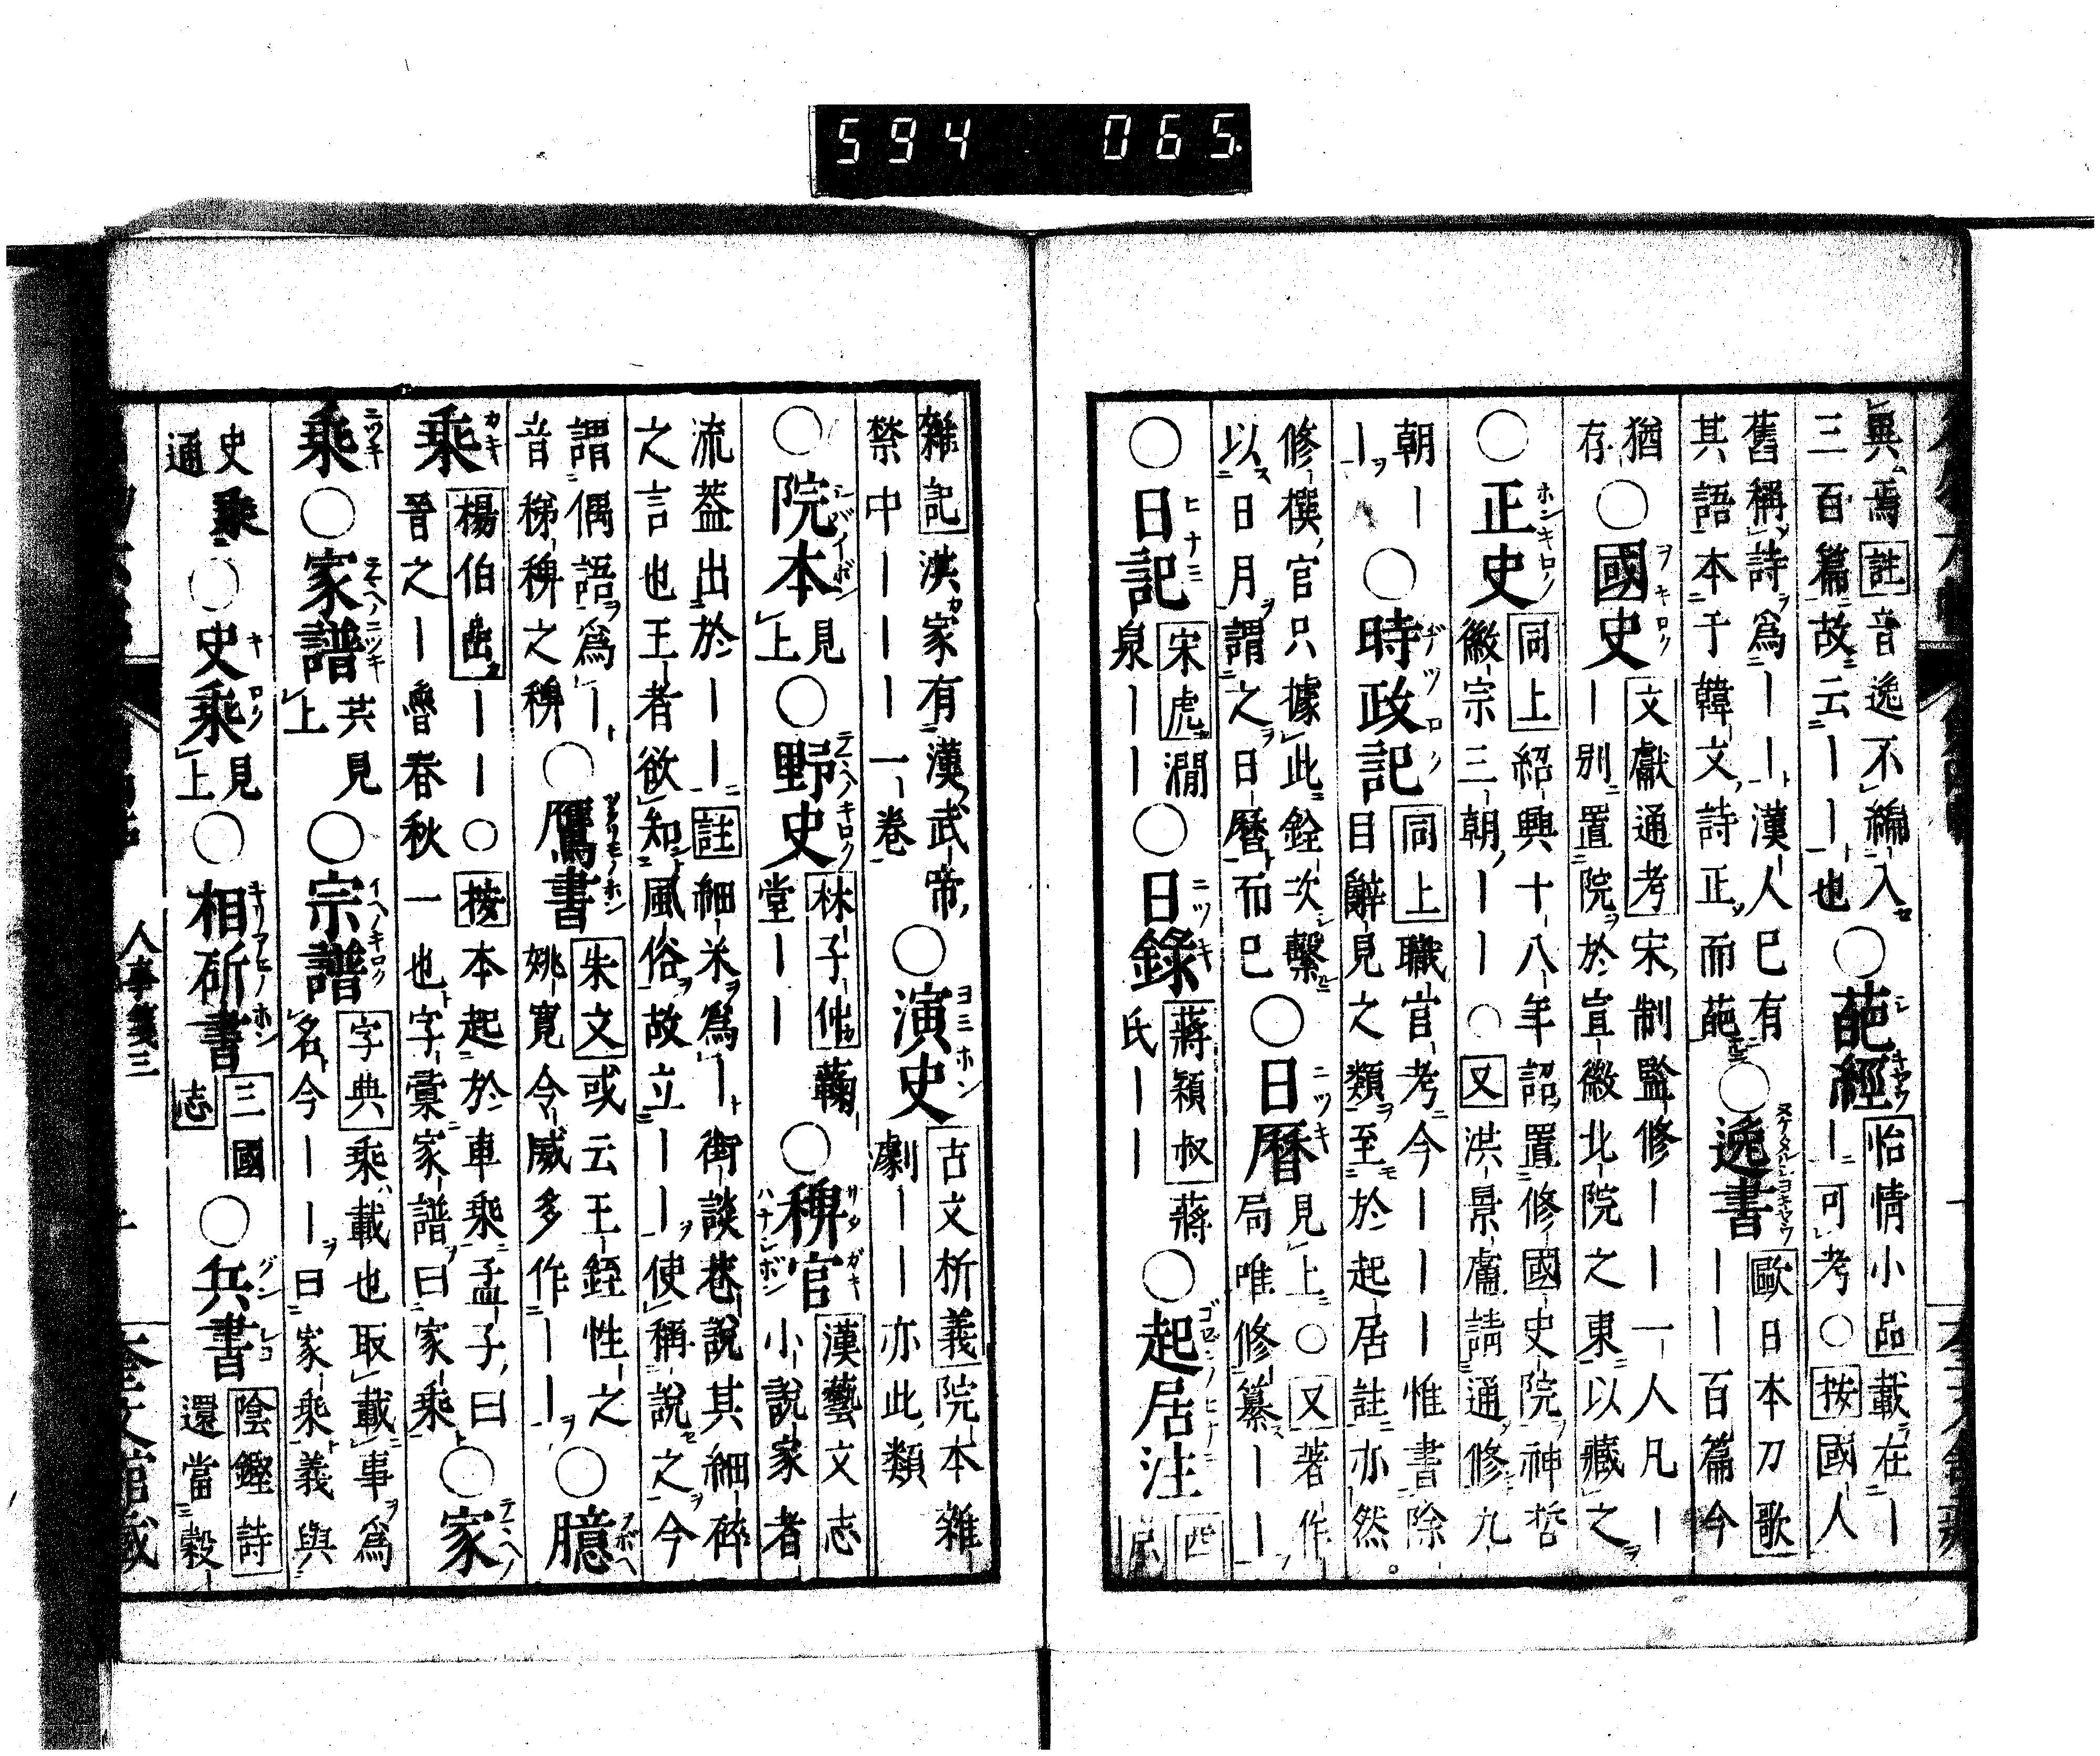 594 065
異焉註音逸不編入
三百篇故云ーー也
○葩經
怡情小品載在ー
ー可考○按國人
舊稱詩爲ーー漢人已有
其語本于韓文詩正而葩
○逸書
歐日本刀歌
ーー百篇今
猶
存
○國史
文獻通考宋制監修ーー一人凡ー
ー別置院於宣徽北院之東以藏之
○正史
同上紹興十八年詔置修國史院神哲
徽宗三朝ーー○又洪景盧請通修九
朝ー
ー
○時政記
同上職官考今ーーー惟書除
目辭見之類至於起居註亦然
修撰官只據此銓次繫
以日月謂之日曆而已
○日曆
見上○又著作
局唯修纂ーー
○日記
宋虎澗
泉ーー
○日錄
蔣穎叔蔣
氏ーー
○起居注
西
京
雜記洪家有漢武帝
禁中ーーー一卷
○演史
古文析義院本雜
劇ーー亦此類
○院本
見
上
○野史
林子仙蘜
堂ーー
○稗官
漢藝文志
小說家者
流蓋出於ーー註細米爲ー街談巷說其細碎
之言也王者欲知風俗故立ーー使稱說之今
謂偶語爲ー
音稊稗之稗
○鷹書
朱文或云王銍性之
姚寬令威多作ーー
○臆
乘
楊伯嵒ーー○按本起於車乘孟子曰
晉之ー魯春秋一也字彙家譜曰家乘
○家
乘
○家譜
共見
上
○宗譜
字典乘載也取載事爲
名今ーー曰家乘義與
史
通
乘
○史乘
見
上
○相斫書
三國
志
○兵書
陰鏗詩
還當穀
人事箋三